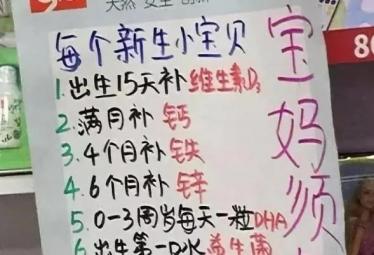 天然 安全
每个新生小宝贝
1.出生15天补维生素D3
2.满月补钙
3.4个月补铁
4.6个月补锌
5.0-3周岁每天一粒DHA
6.出生第一口水益生菌
宝妈须